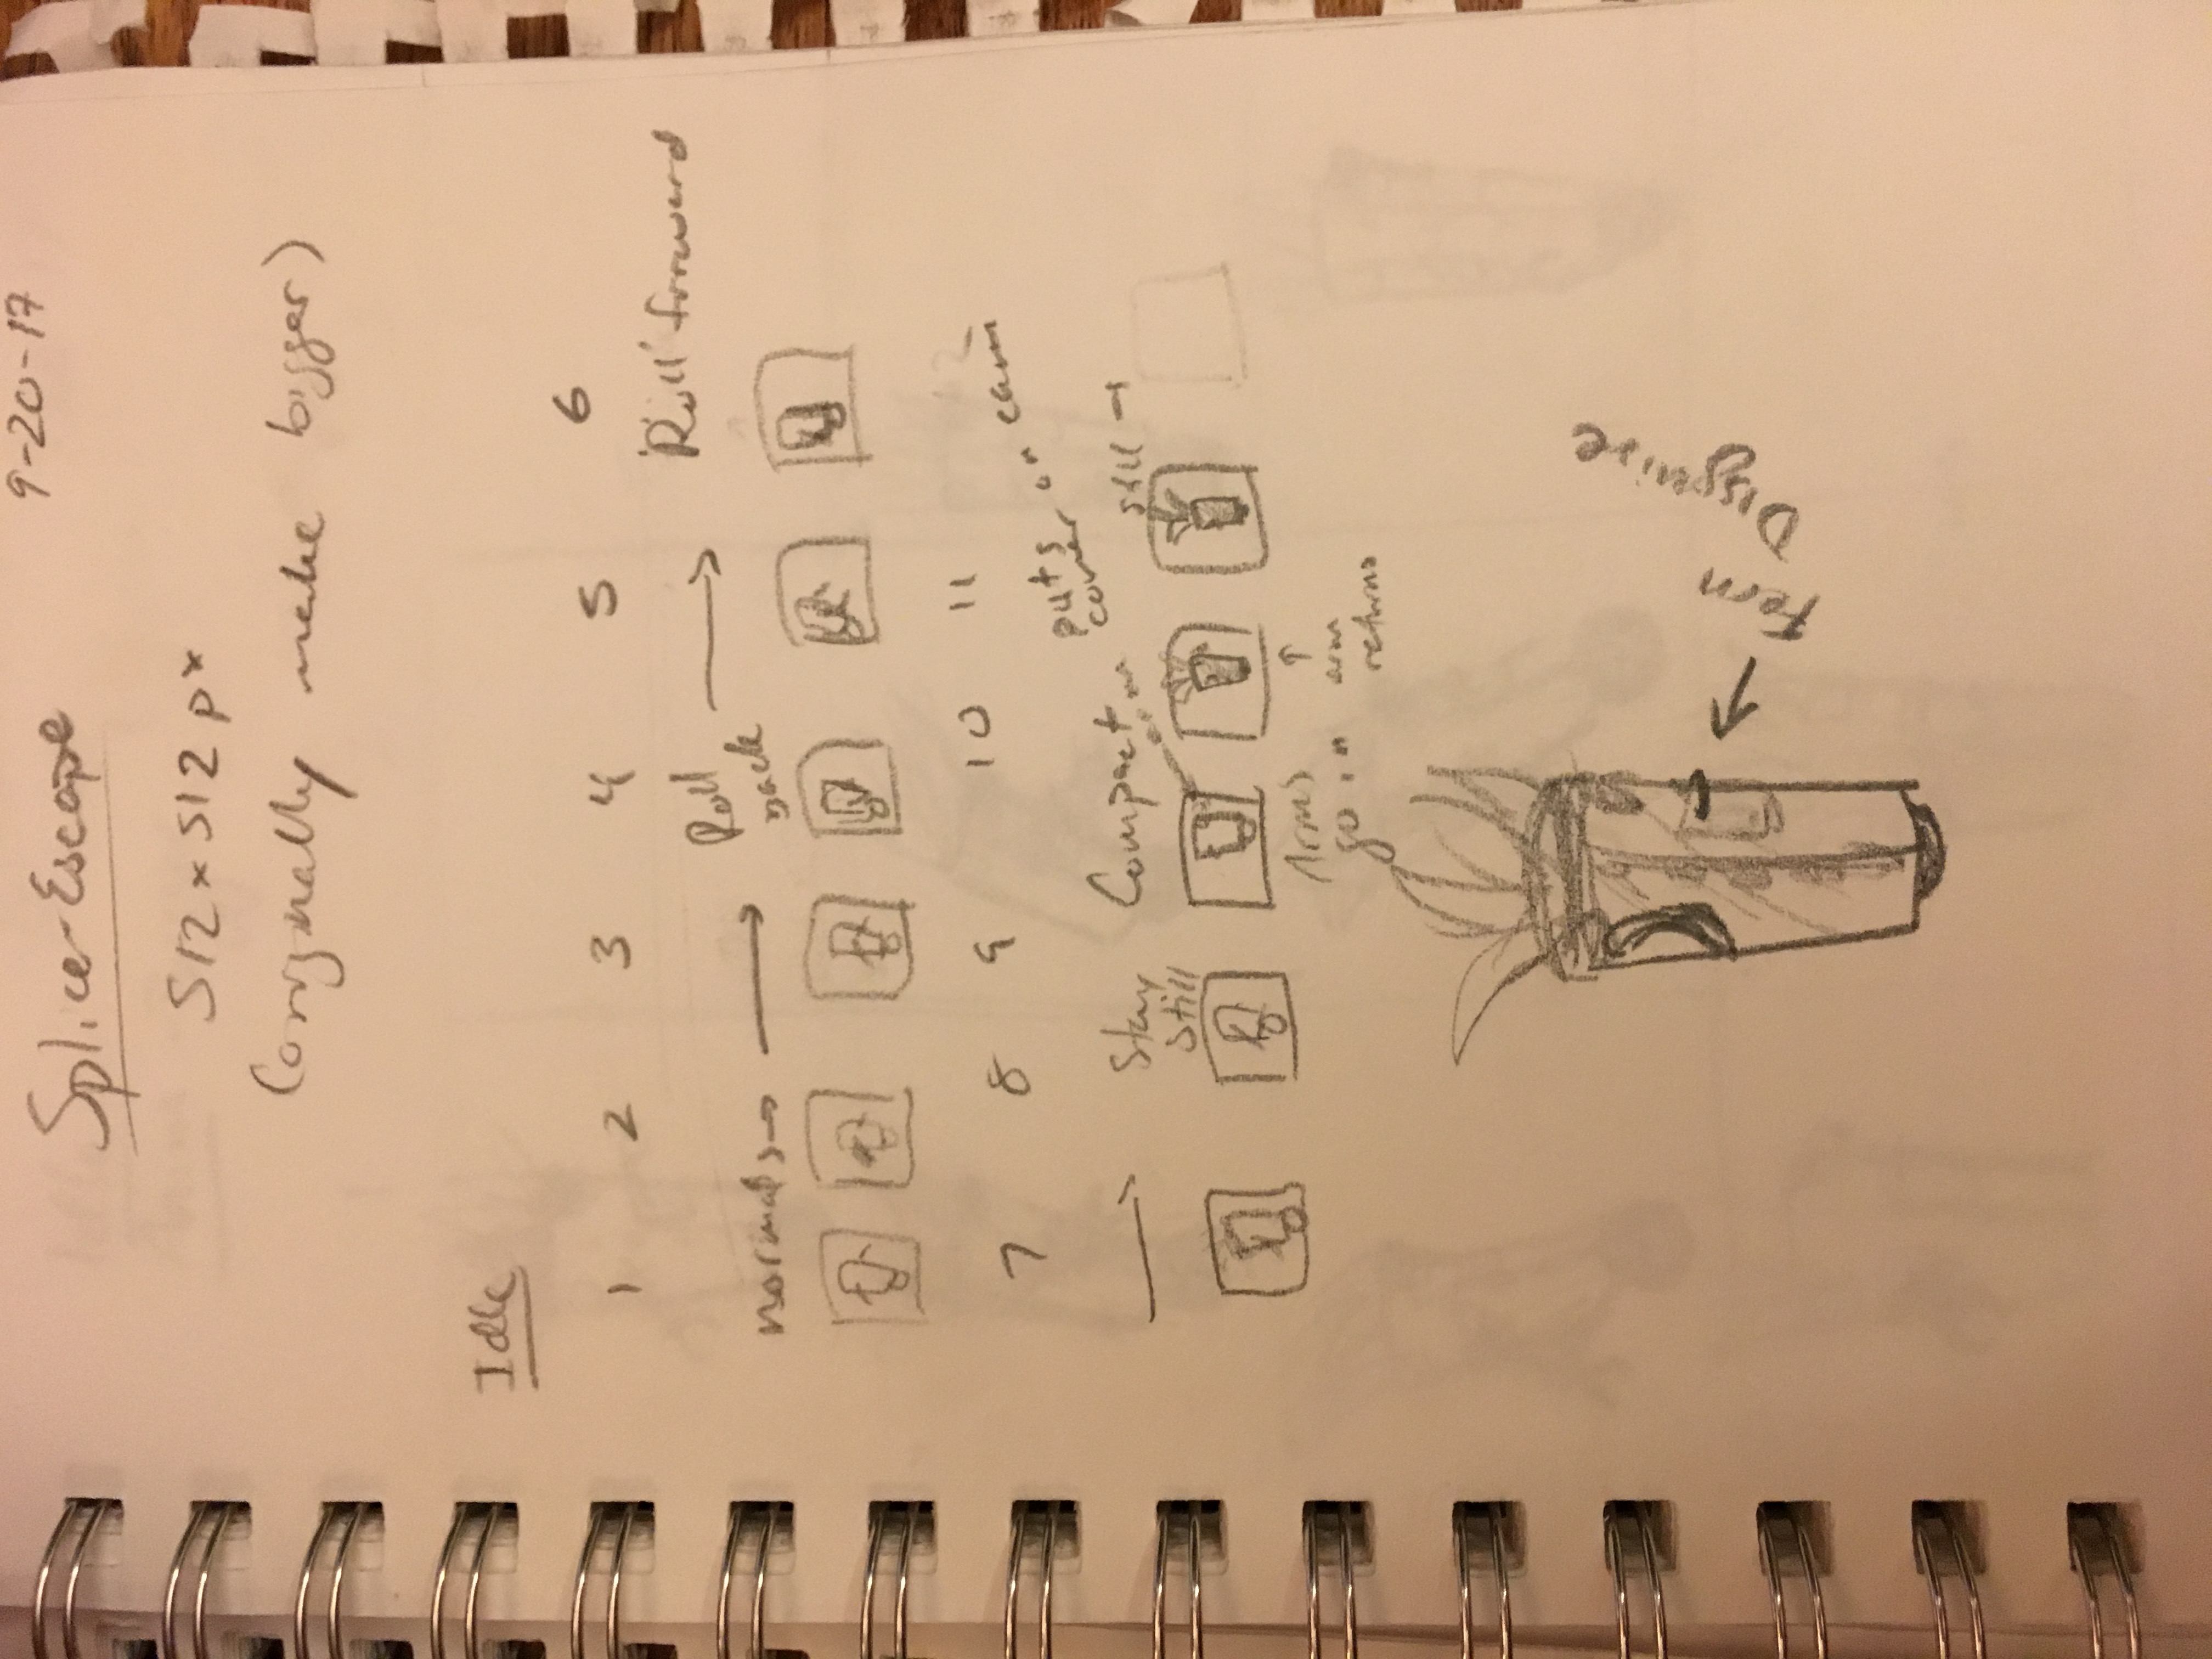 9-20-17
Splice-Escape
512 x 512 px
(originally make bigger)
Idle
1 2 3 4 5 6
normal
Roll
back
"Roll" forward
7 8 9 10 11
12
Stay
Still
Compact
puts
cover on
still
Arms
go in
arm
returns
Fern
Disguise